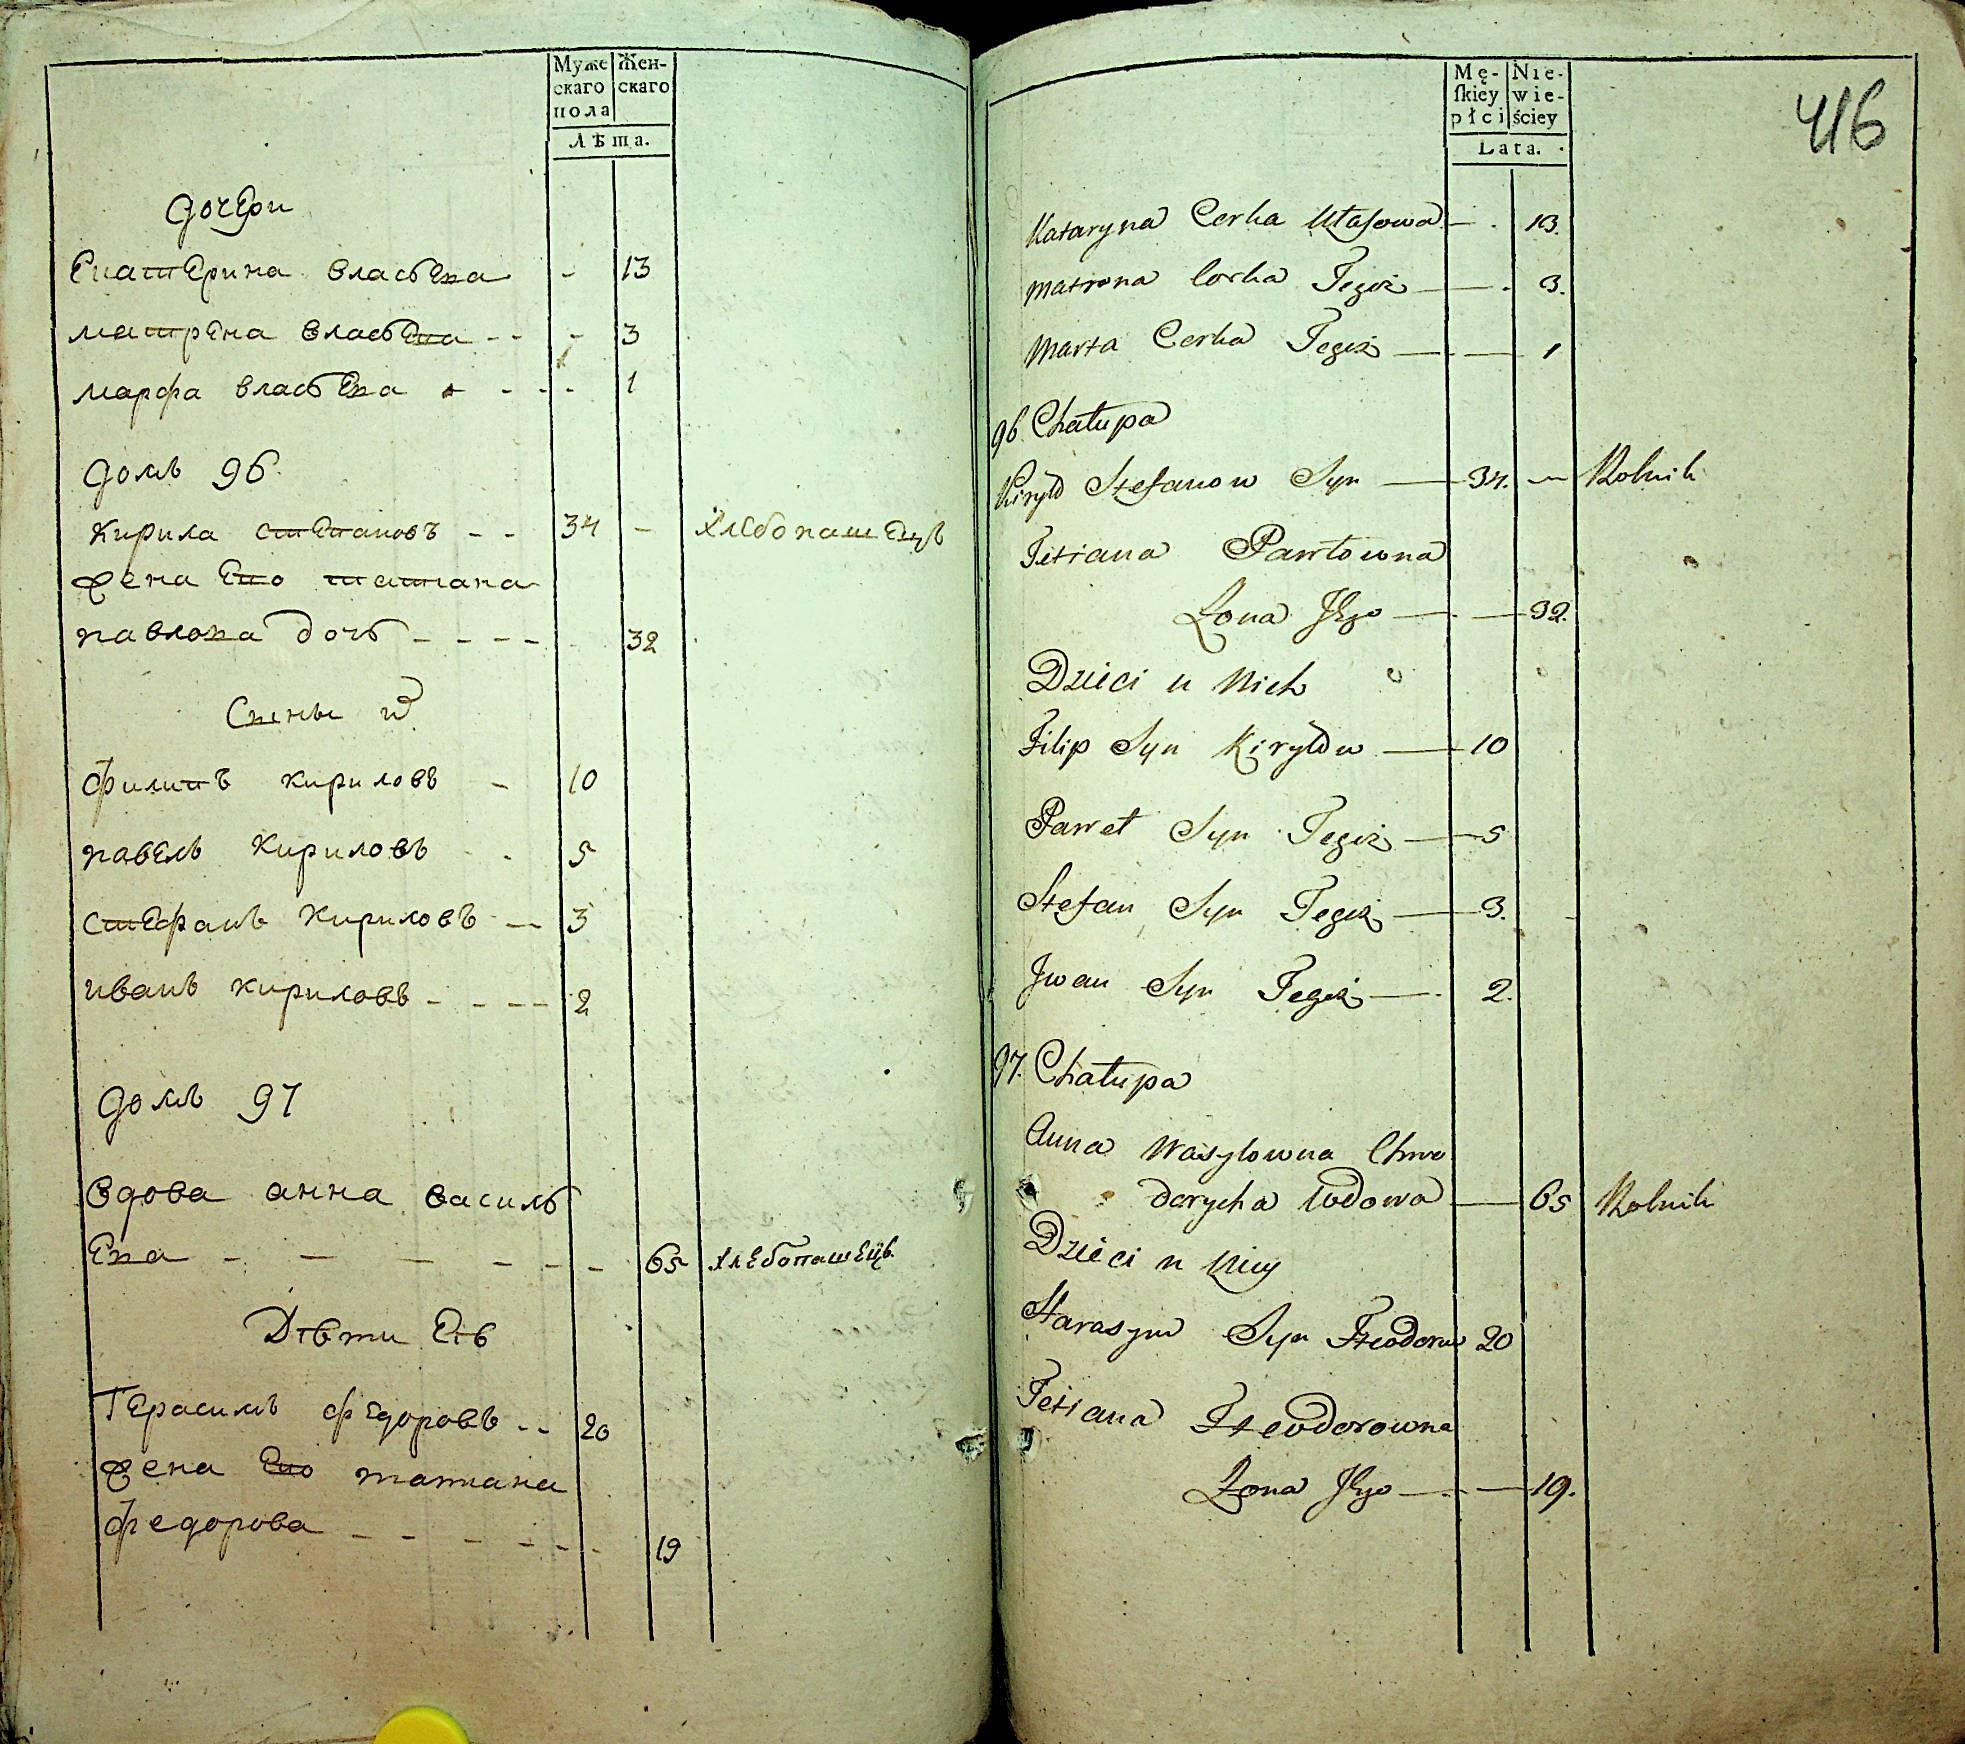 Муже
скаго
пола
Жен-
скаго
Лѣта.
Дочери
Екатерина власова 13
матрена власова 3
марфа власова 1
домъ 96
Кирила степановъ 34 хлебопашецъ
жена Ево татиана
павлова дочь 32
Сыны их
филипъ кириловъ 10
павелъ кириловъ 5
стефанъ кириловъ 3
иванъ кириловъ 2
домъ 97
вдова анна василь
Ева 65 хлебопашецъ
Дѣти Еѣ
Герасимъ федоровъ 20
жена Ево татиана
федорова 19
416
Mę-
skiey
płci
Nie-
wie-
ściey
Lata.
Kataryna Corka Ułasowa 13.
Matrona Corka Tegoż 3.
Marta Corka Tegoż 1
96 Chałupa
Kiryło Stefanow Syn 34. Rolnik
Tetiana Pawłowna
Żona Jego 32.
Dzieci u Nich
Filip Syn Kiryłow 10
Paweł Syn Tegoż 5
Stefan Syn Tegoż 3.
Jwan Syn Tegoż 2.
97. Chałupa
Anna Wasylowna Chwe
dorycha Wdowa 65 Rolnik
Dzieci u Niey
Harasym Syn Fteodorow 20
Tetiana Fteodorowna
Żona Jego 19.